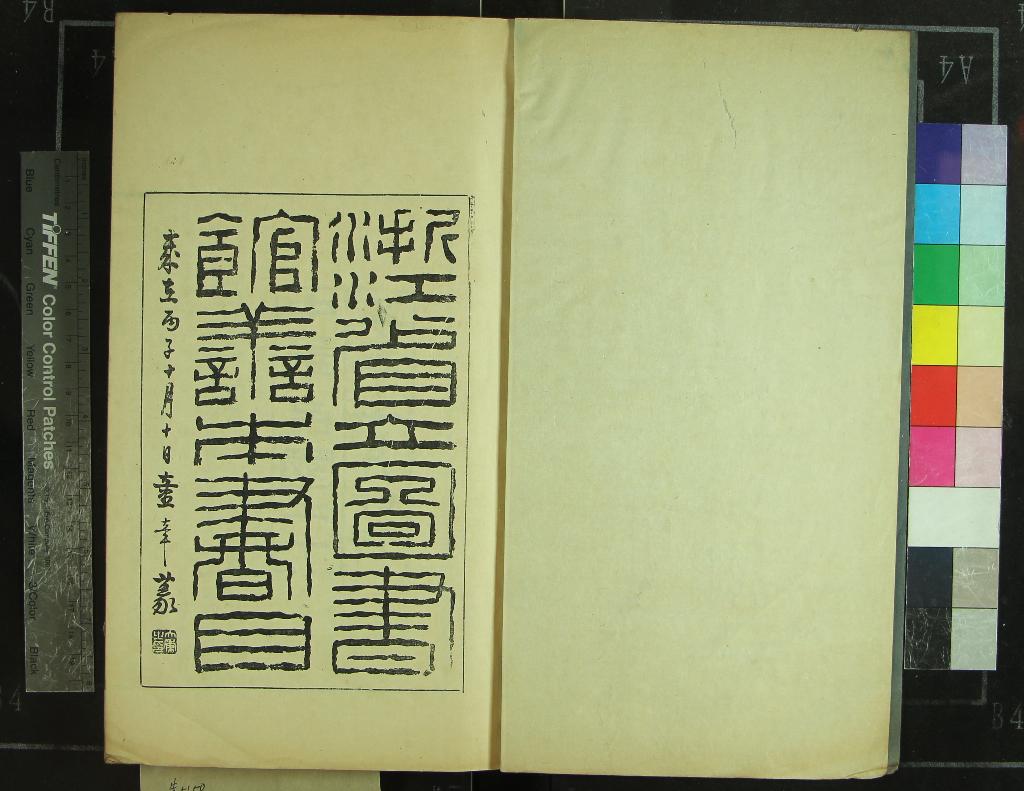 浙江省立圖書
館善本書目
歲在丙子十月十日童大年篆
TIFFEN Color Control Patches
Blue Cyan Green Yellow Red Magenta White 3/Color Black
A4
B4